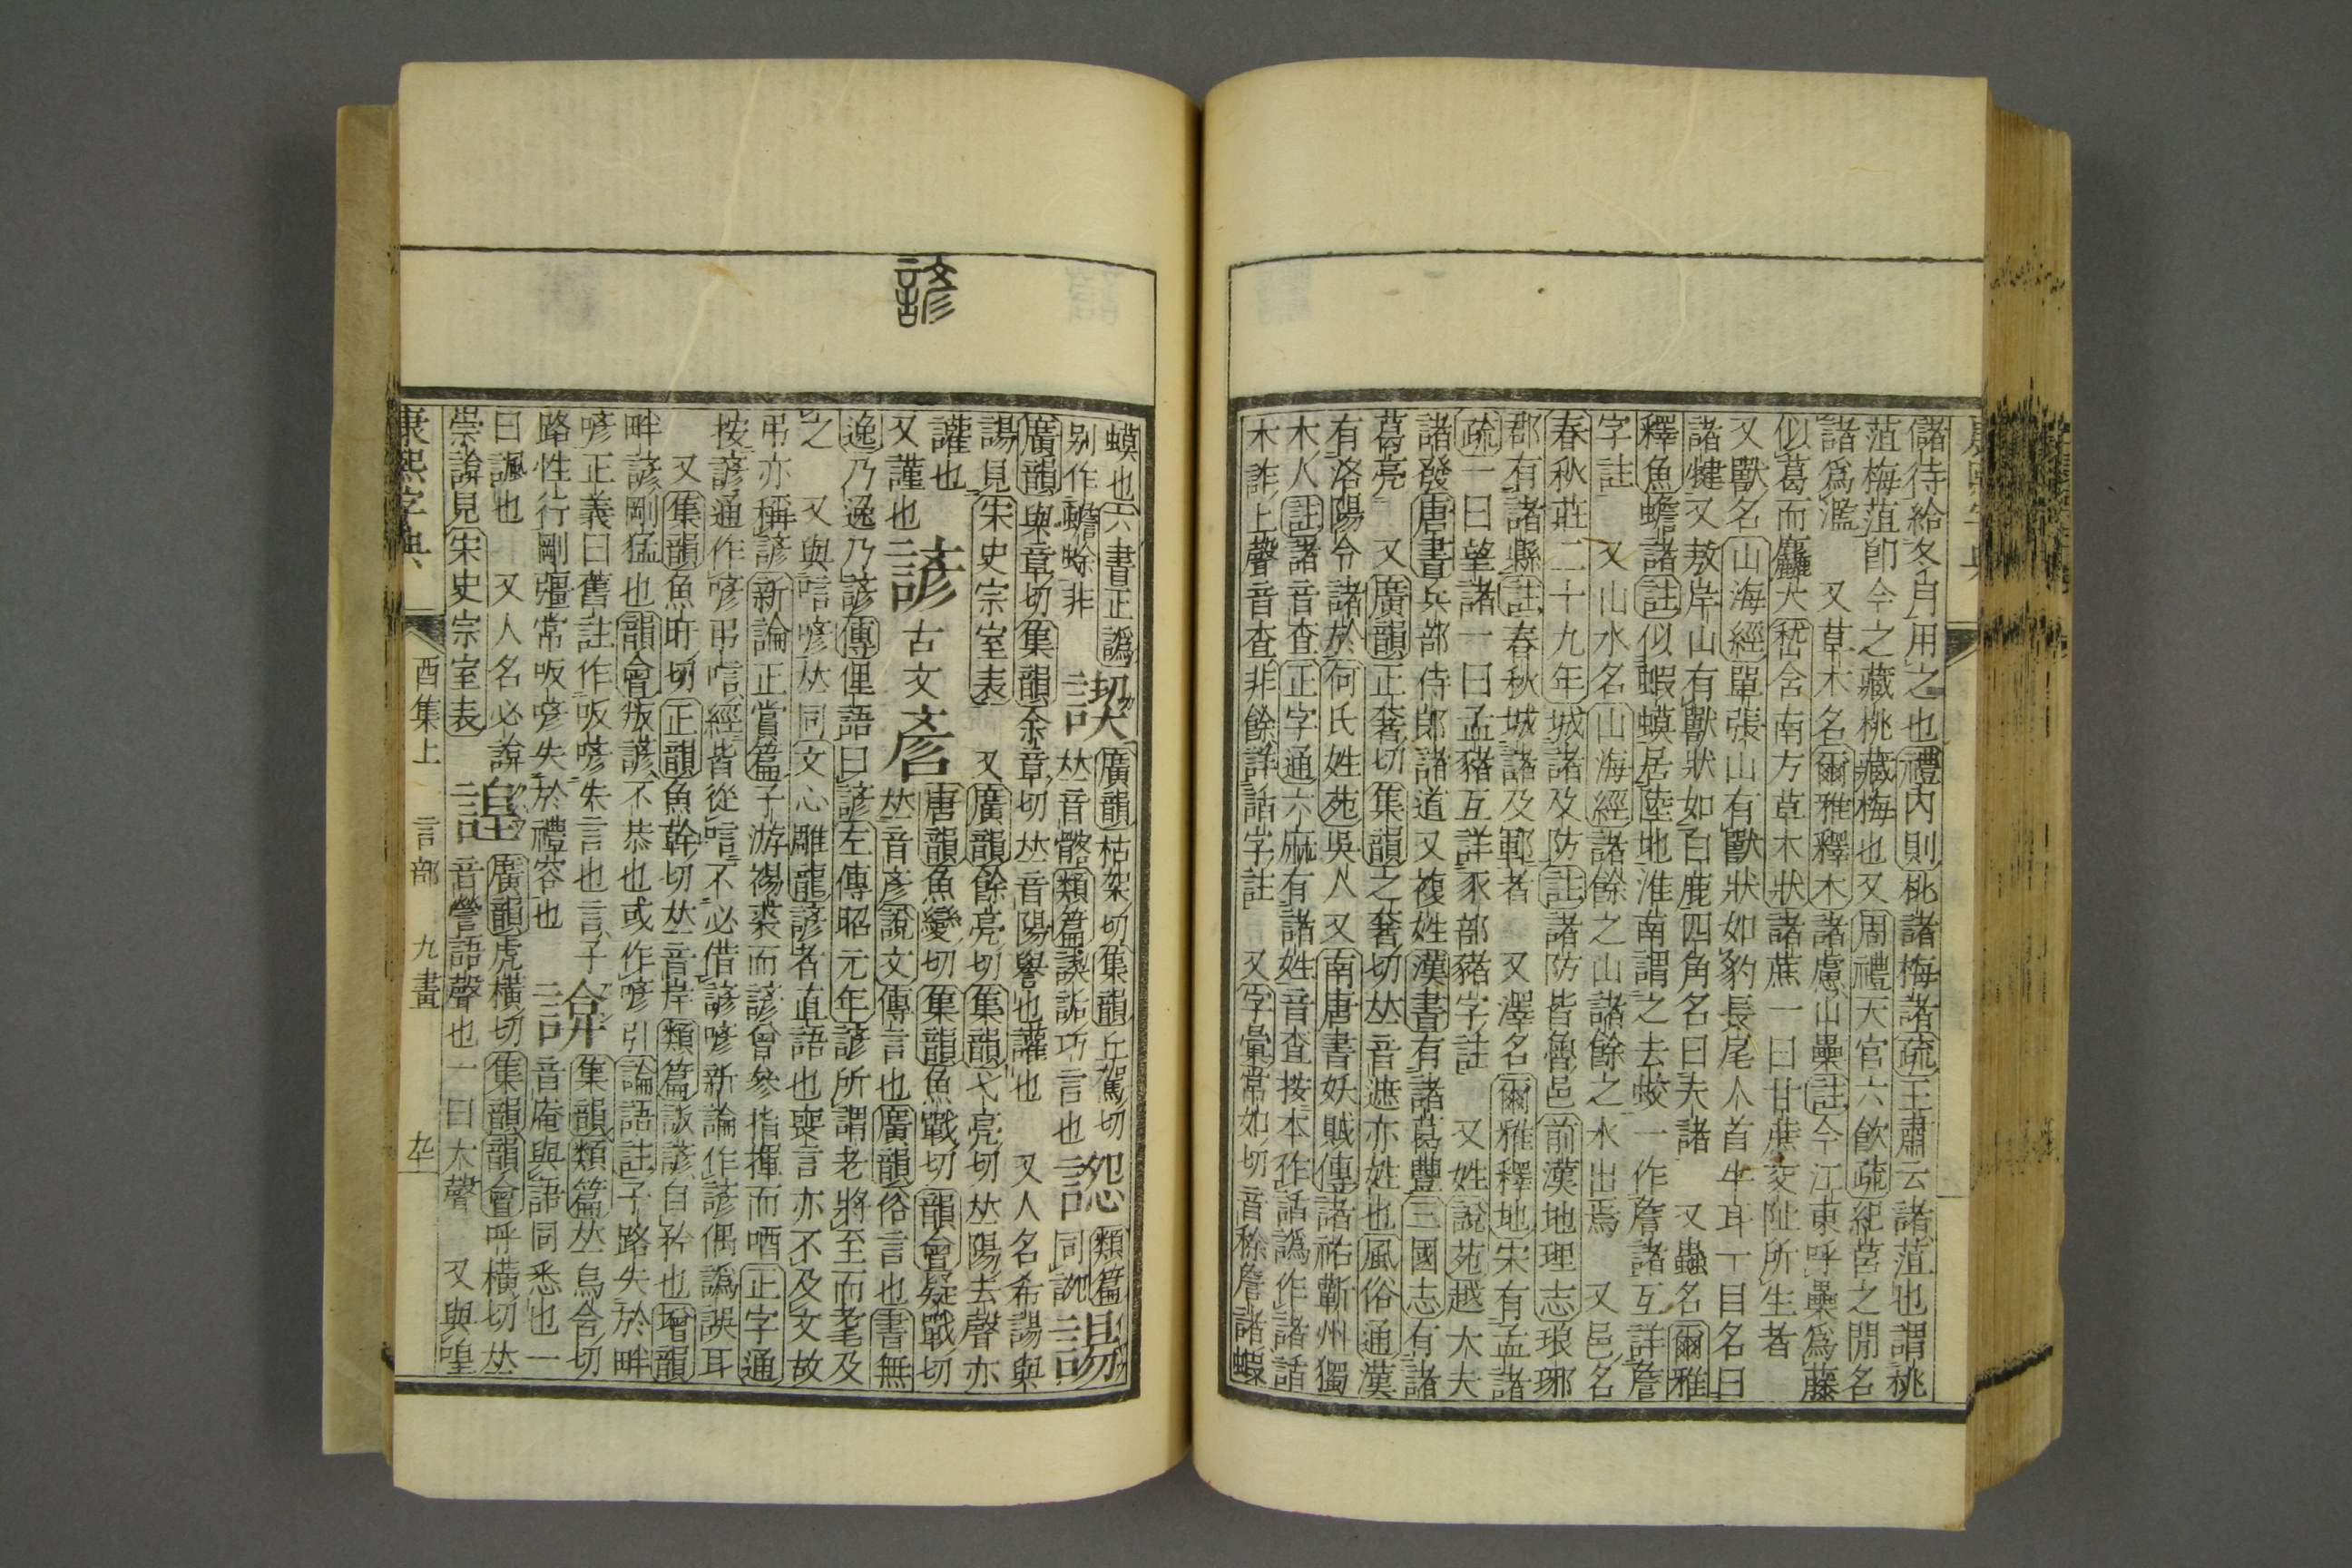 儲待給冬月用之也禮內則桃諸梅諸疏王肅云諸菹也謂桃
菹梅菹卽今之藏桃藏梅也又周禮天官六飮疏紀莒之閒名
諸爲濫 又草木名爾雅釋木諸慮山櫐註今江東呼櫐爲藤
似葛而麤大嵇含南方草木狀諸蔗一曰甘蔗交阯所生者
又獸名山海經單張山有獸狀如豹長尾人首牛耳一目名曰
諸犍又敖岸山有獸狀如白鹿四角名曰夫諸 又蟲名爾雅
釋魚蟾諸註似蝦蟆居陸地淮南謂之去蚥一作詹諸互詳詹
字註 又山水名山海經諸餘之山諸餘之水出焉 又邑名
春秋莊二十九年城諸及防註諸防皆魯邑前漢地理志琅邪
郡有諸縣註春秋城諸及鄆者 又澤名爾雅釋地宋有孟諸
疏一曰望諸一曰孟豬互詳豕部豬字註 又姓說苑越大夫
諸發唐書兵部侍郎諸道又複姓漢書有諸葛豐三國志有諸
葛亮 又廣韻正奢切集韻之奢切𠀤音遮亦姓也風俗通漢
有洛陽令諸於何氏姓苑吳人又南唐書妖賊傳諸祐蘄州獨
木人註諸音查正字通六麻有諸姓音查按本作䜁譌作諸䜁
木詐上聲音查非餘詳䜁字註 又字彙常如切音稌詹諸蝦
蟆也六書正譌
別作蟾蜍非 𧩪廣韻枯架切集韻丘駕切
𠀤音骼類篇𧩪䛩巧言也 𧪄類篇
同訵 諹
廣韻與章切集韻余章切𠀤音陽譽也讙也 又人名希諹與
諹見宋史宗室表 又廣韻餘亮切集韻弋亮切𠀤陽去聲亦
讙也
又謹也 諺古文彥唐韻魚變切集韻魚戰切韻會疑戰切
𠀤音彥說文傳言也廣韻俗言也書無
逸乃逸乃諺傳俚語曰諺左傳昭元年諺所謂老將至而耄及
之 又與唁喭𠀤同文心雕龍諺者直語也喪言亦不及文故
弔亦稱諺新論正賞篇子游裼裘而諺曾參指揮而哂正字通
按諺通作喭弔唁經皆從唁不必借諺喭新論作諺偶譌誤耳
又集韻魚旰切正韻魚幹切𠀤音岸類篇詖諺自矜也增韻
畔諺剛猛也韻會叛諺不恭也或作喭引論語註子路失於畔
喭正義曰舊註作昄喭失言也言子
路性行剛彊常昄喭失於禮容也 䛳集韻類篇𠀤烏含切
音庵與諳同悉也一
曰諷也 又人名必䛳
崇䛳見宋史宗室表 諻廣韻虎橫切集韻韻會呼橫切𠀤
音諻語聲也一曰大聲 又與喤
康熙字典 酉集上 言部 九畫
諺